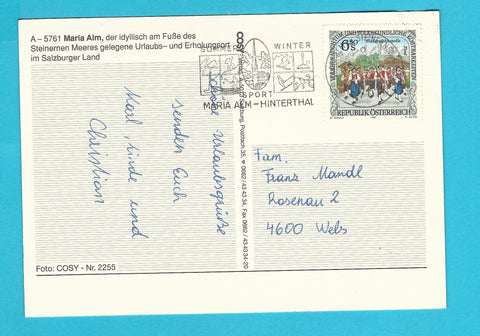 A – 5761 Maria Alm, der idyllisch am Fuße des
Steinernen Meeres gelegene Urlaubs– und Erholungsort
im Salzburger Land
SUMMER
WINTER
SPORT
MARIA ALM – HINTERTHAL
6 S
REPUBLIK ÖSTERREICH
Schöne Urlaubsgrüße
senden Euch
Karl, Linde und
Christian
Fam.
Franz Mandl
Rosenau 2
4600 Wels
COSY
Postfach 35, ☎ 0662/43 43 34, Fax 0662/43 43 34-20
Foto: COSY - Nr. 2255